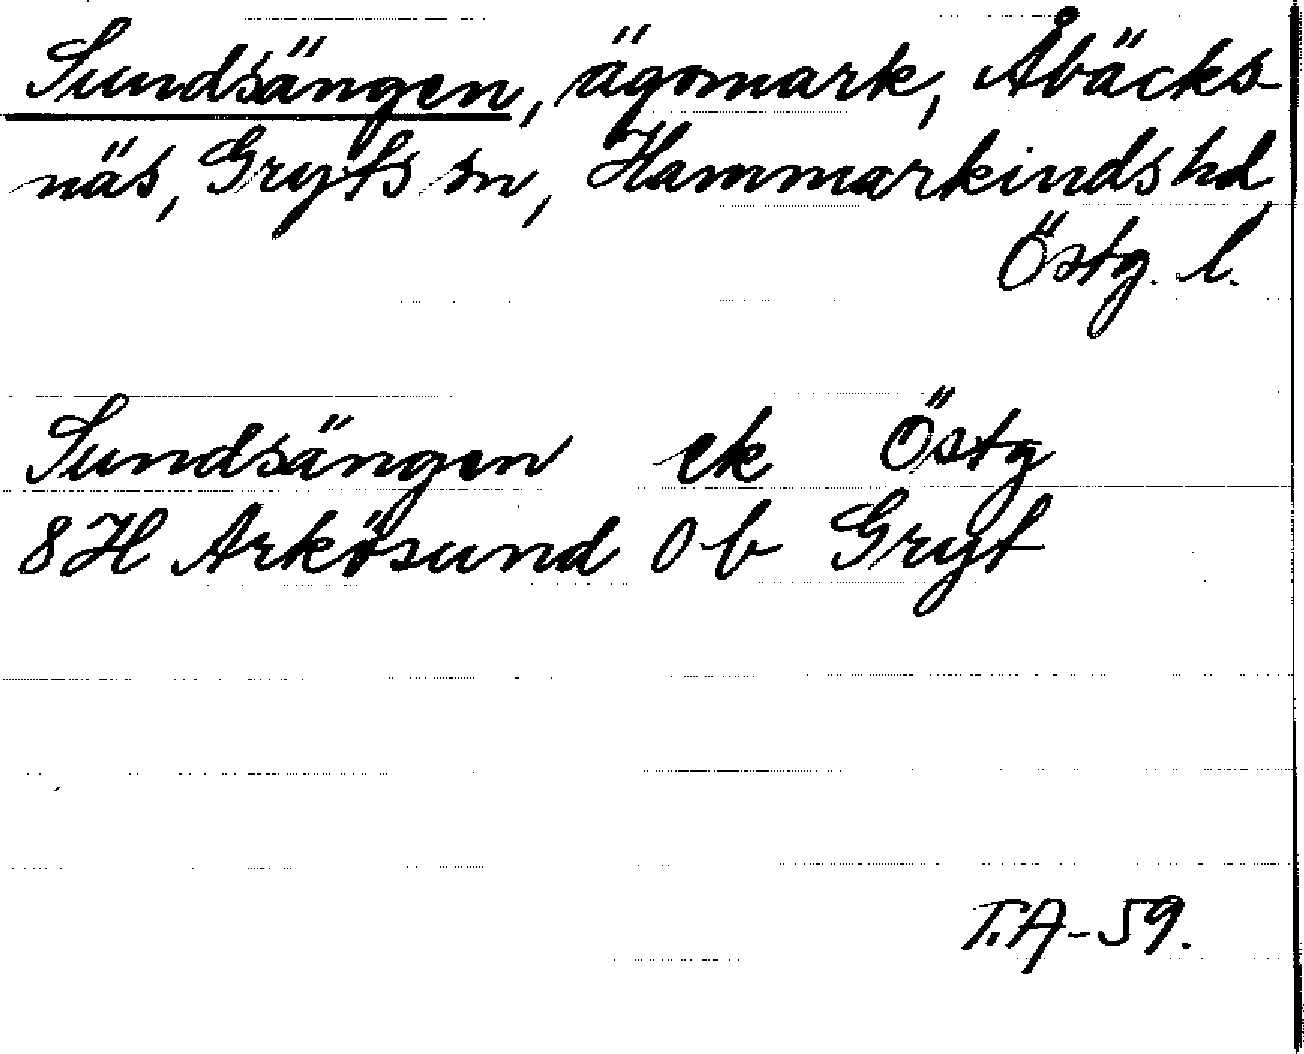 Sundsängen, ägomark, Åbäcks-
näs, Gryts sn, Hammarkinds hd
Östg. l.
Sundsängen ek Östg
8H Arkösund 0 b Gryt
T.A-59.